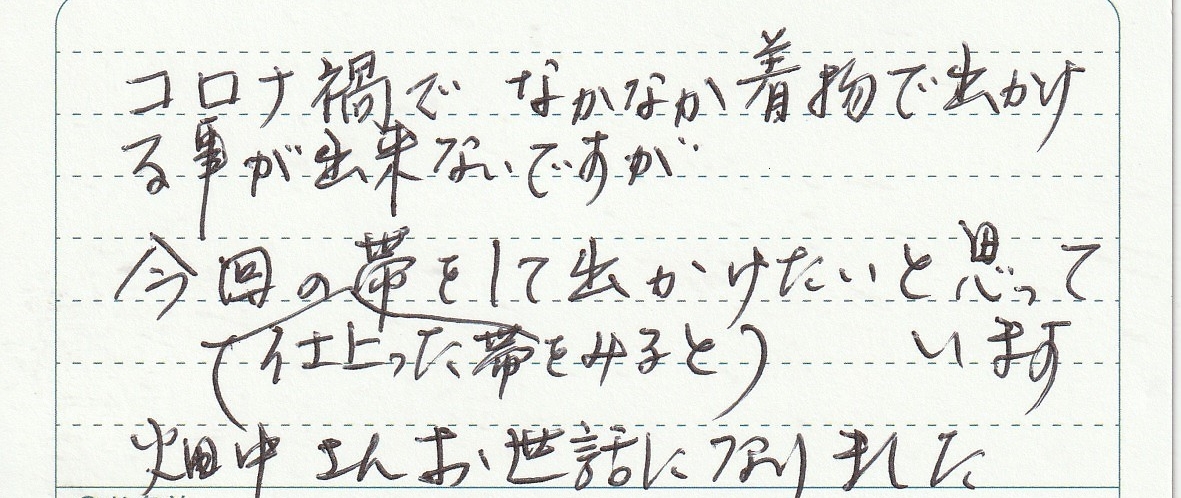 コロナ禍で なかなか着物で出かけ
る事が出来ないですが
今回の帯をして出かけたいと思って
(仕上った帯をみると) います
畑中さんお世話になりました